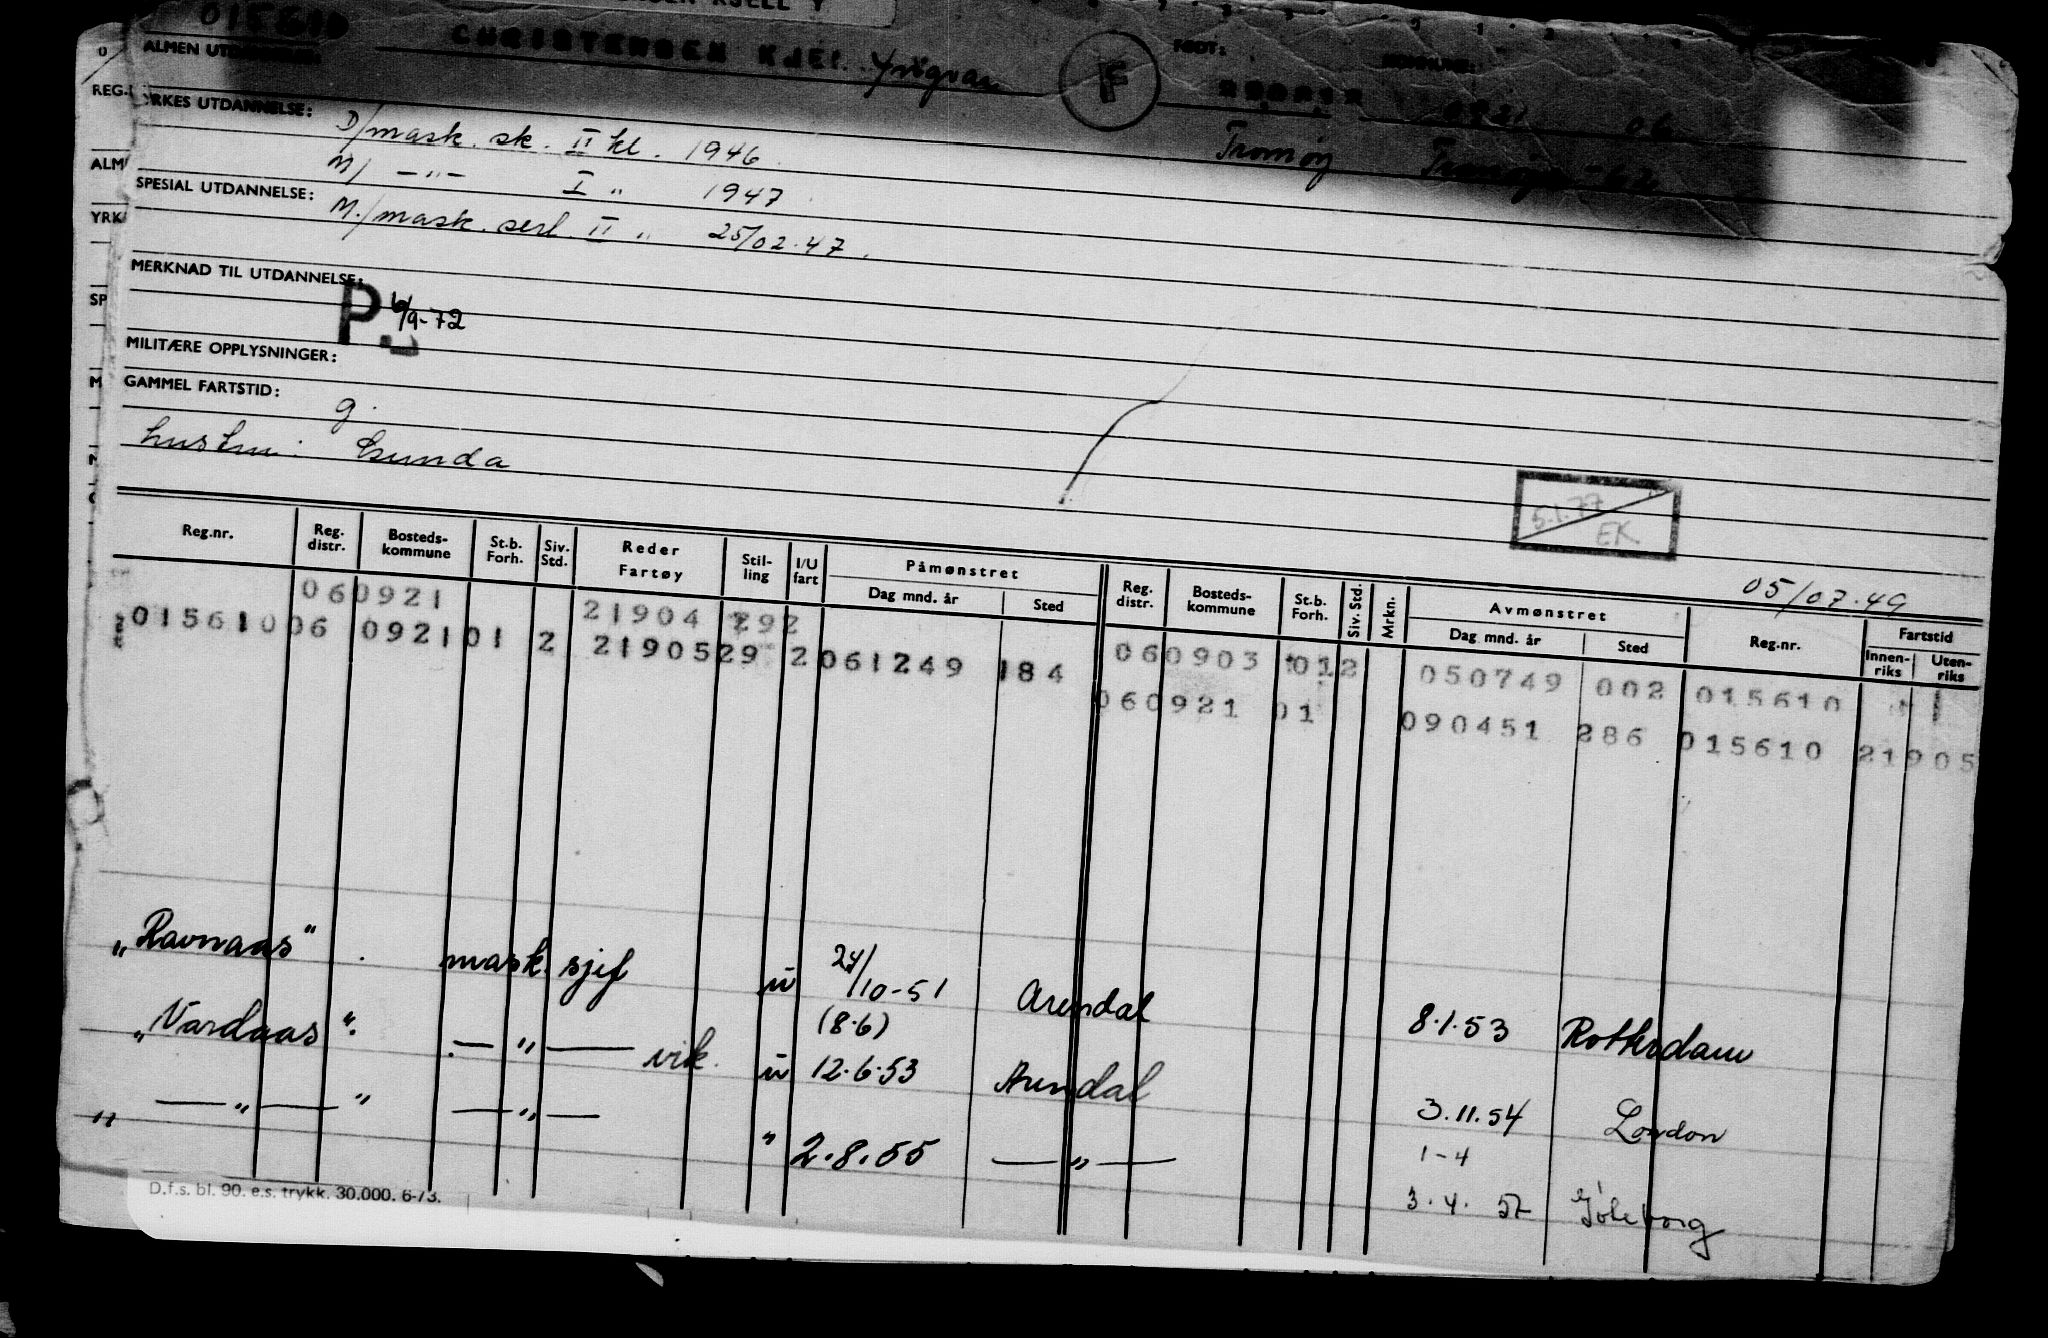 015610 CHRISTENSEN KJEL Yngvar F FØDT:
ALMEN UTDANNELSE:
REG.
YRKES UTDANNELSE: D/mask. sk. II kl. 1946 Tromøy
ALM
M/ —"— I " 1947
SPESIAL UTDANNELSE: M./mask. sert. II " 25/02.47.
YRK
MERKNAD TIL UTDANNELSE:
SP
P 6/9-72
MILITÆRE OPPLYSNINGER:
M
GAMMEL FARTSTID:
g.
hustru: Gunda
5.1.77
EK
05/07.49
Reg.nr. Reg. distr. Bosteds-kommune St.b. Forh. Siv. Std. Reder Fartøy Stil-ling I/U fart Påmønstret Dag mnd. år Sted Reg. distr. Bosteds-kommune St.b. Forh. Siv. Std. Mrkn. Avmønstret Dag mnd. år Sted Reg.nr. Fartstid Innen-riks Uten-riks
060921 21904 292 060903 012 050749 002 015610
015610 06 0921 01 2 21905 29 2 061249 184 060921 01 090451 286 015610 21905
"Ravnaas". mask sjef u 24/10-51 Arendal 8.1.53 Rotterdam
(8.6)
"Vardaas". —"— vik. u 12.6.53 Arendal 3.11.54 London
1-4
" —"— " —"— " 2.8.55 —"— 3.4. 57 Göteborg
D.f.s. bl. 90. e.s. trykk. 30.000. 6-73.